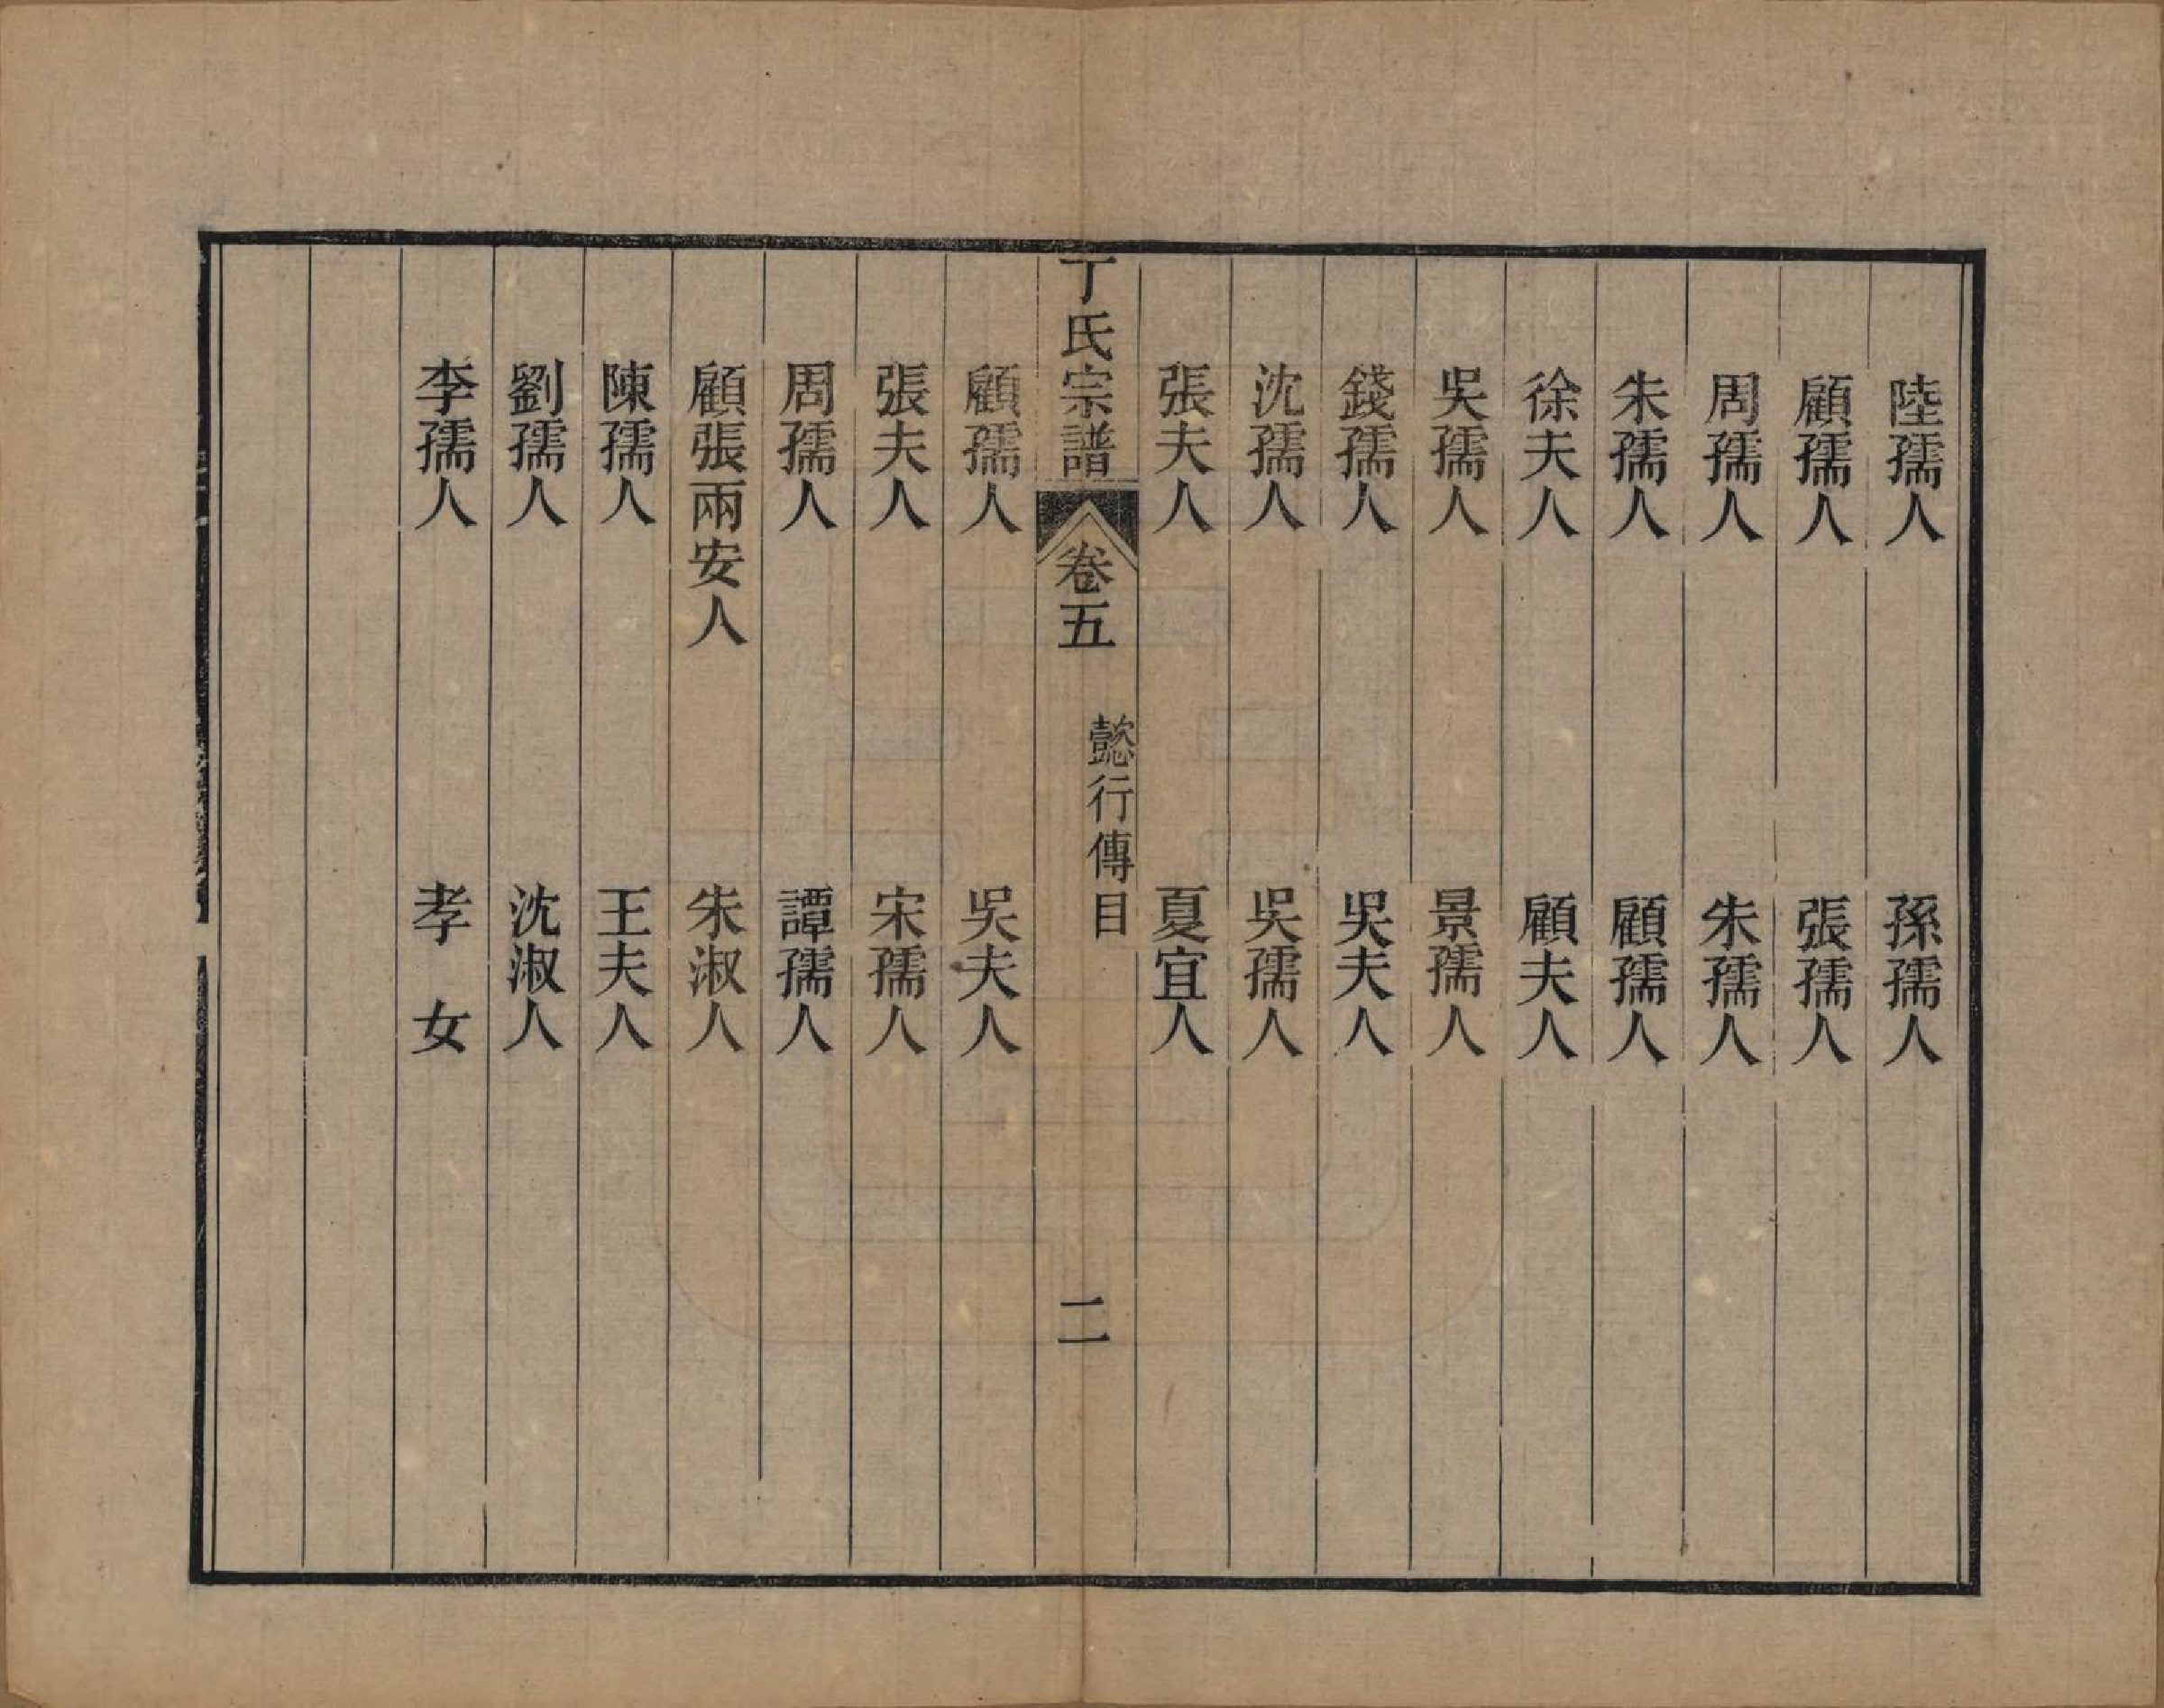 陸孺人　孫孺人
顧孺人　張孺人
周孺人　朱孺人
朱孺人　顧孺人
徐夫人　顧夫人
吳孺人　景孺人
錢孺人　吳夫人
沈孺人　吳孺人
張夫人　夏宜人
丁氏宗譜　卷五　懿行傳目　二
顧孺人　吳夫人
張夫人　宋孺人
周孺人　譚孺人
顧張兩安人　朱淑人
陳孺人　王夫人
劉孺人　沈淑人
李孺人　孝女